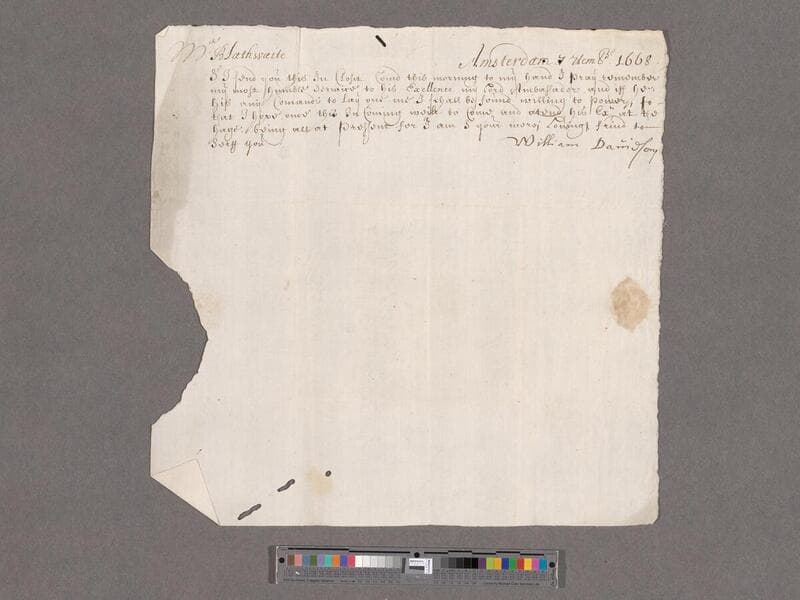 Mr Blathwaite Amsterdam 7 1668
Sr I send you this In Closit Comd this morning to my hand I pray remember
my most humble Service to his Excellence my Lord Ambasador and iff he
his any Comands to Lay one me I shall be found willing to power, so
that I hope once this In Coming week to Come and atend his Ex at the
hage, being all at present for I am Sr your loving frind to
Serff you William Davidson